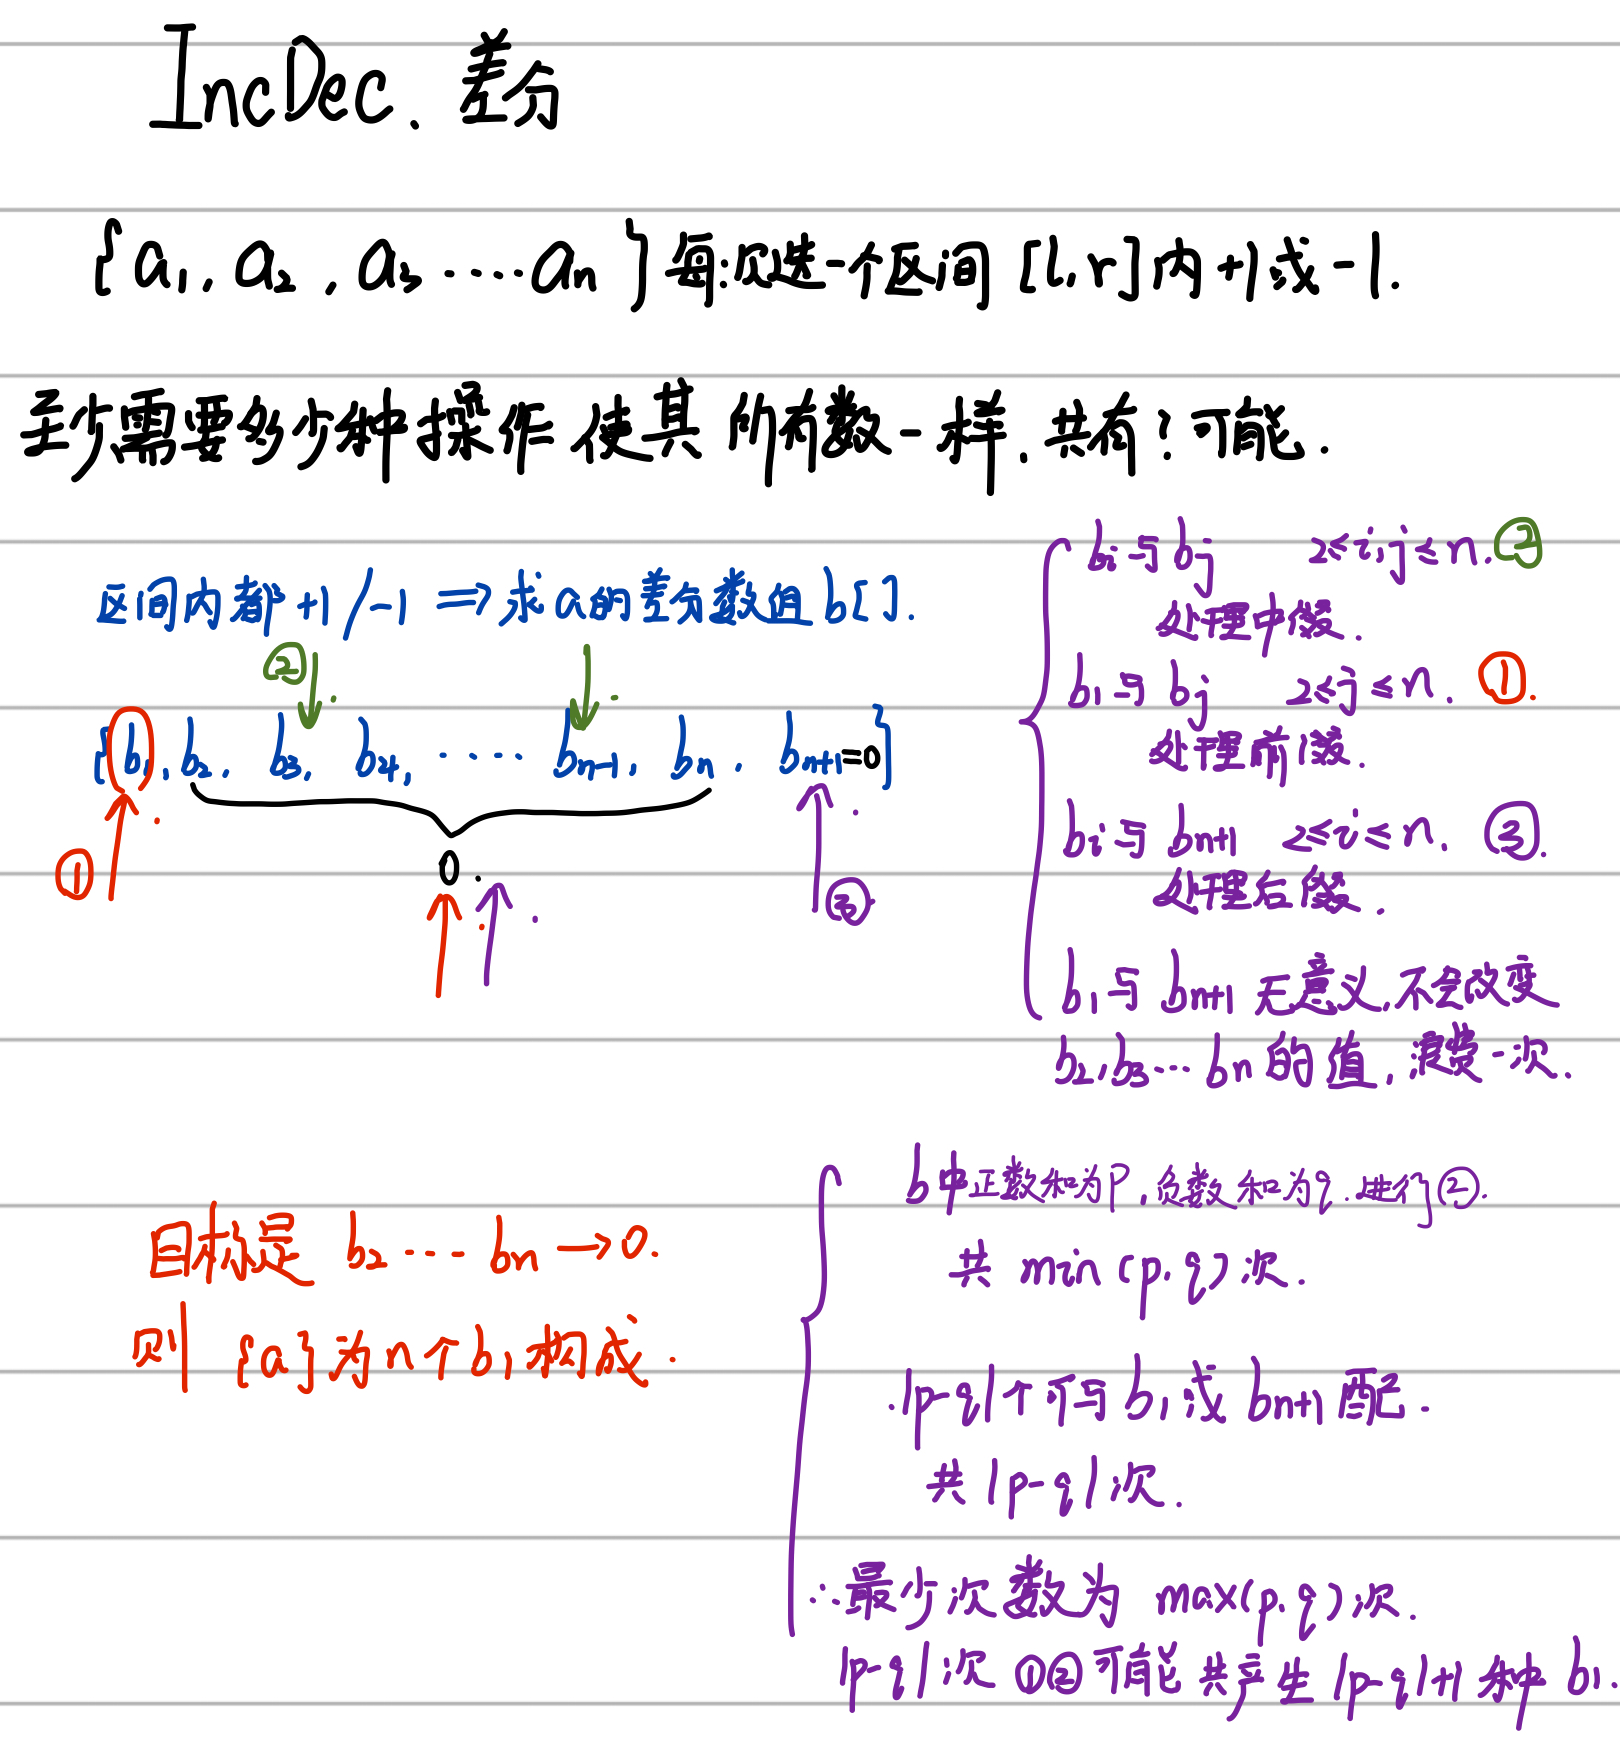 IncDec. 差分
{a₁, a₂, a₃ ····· aₙ} 每次选一个区间 [l, r] 内 +1或 -1.
至少需要多少种操作 使其所有数一样. 共有?可能.
区间内都 +1/-1 ⇒ 求a的差分数值 b[].
②
{b₁, b₂, b₃, b₄, ····· bₙ₋₁, bₙ, bₙ₊₁=0}
①
0.
③
bᵢ与bⱼ 2≤i,j≤n. ②
处理中缀.
b₁与bⱼ 2≤j≤n. ①.
处理前缀.
bᵢ与bₙ₊₁ 2≤i≤n. ③.
处理后缀.
b₁与bₙ₊₁ 无意义, 不会改变
b₂,b₃···bₙ的值, 浪费一次.
目标是 b₂ ···· bₙ → 0.
则 {a}为n个b₁构成.
b中正数和为p, 负数和为q. 进行②.
共 min(p,q)次.
|p-q|个可与b₁或bₙ₊₁配.
共|p-q|次.
∴最少次数为 max(p,q)次.
|p-q|次 ①②可能 共产生|p-q|+1种b₁.